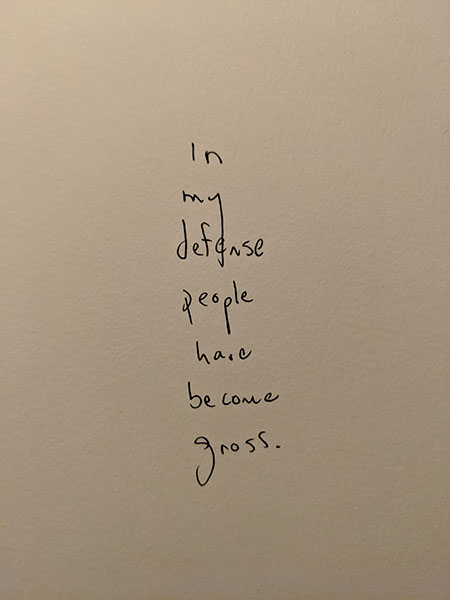 In
my
defense
people
have
become
gross.